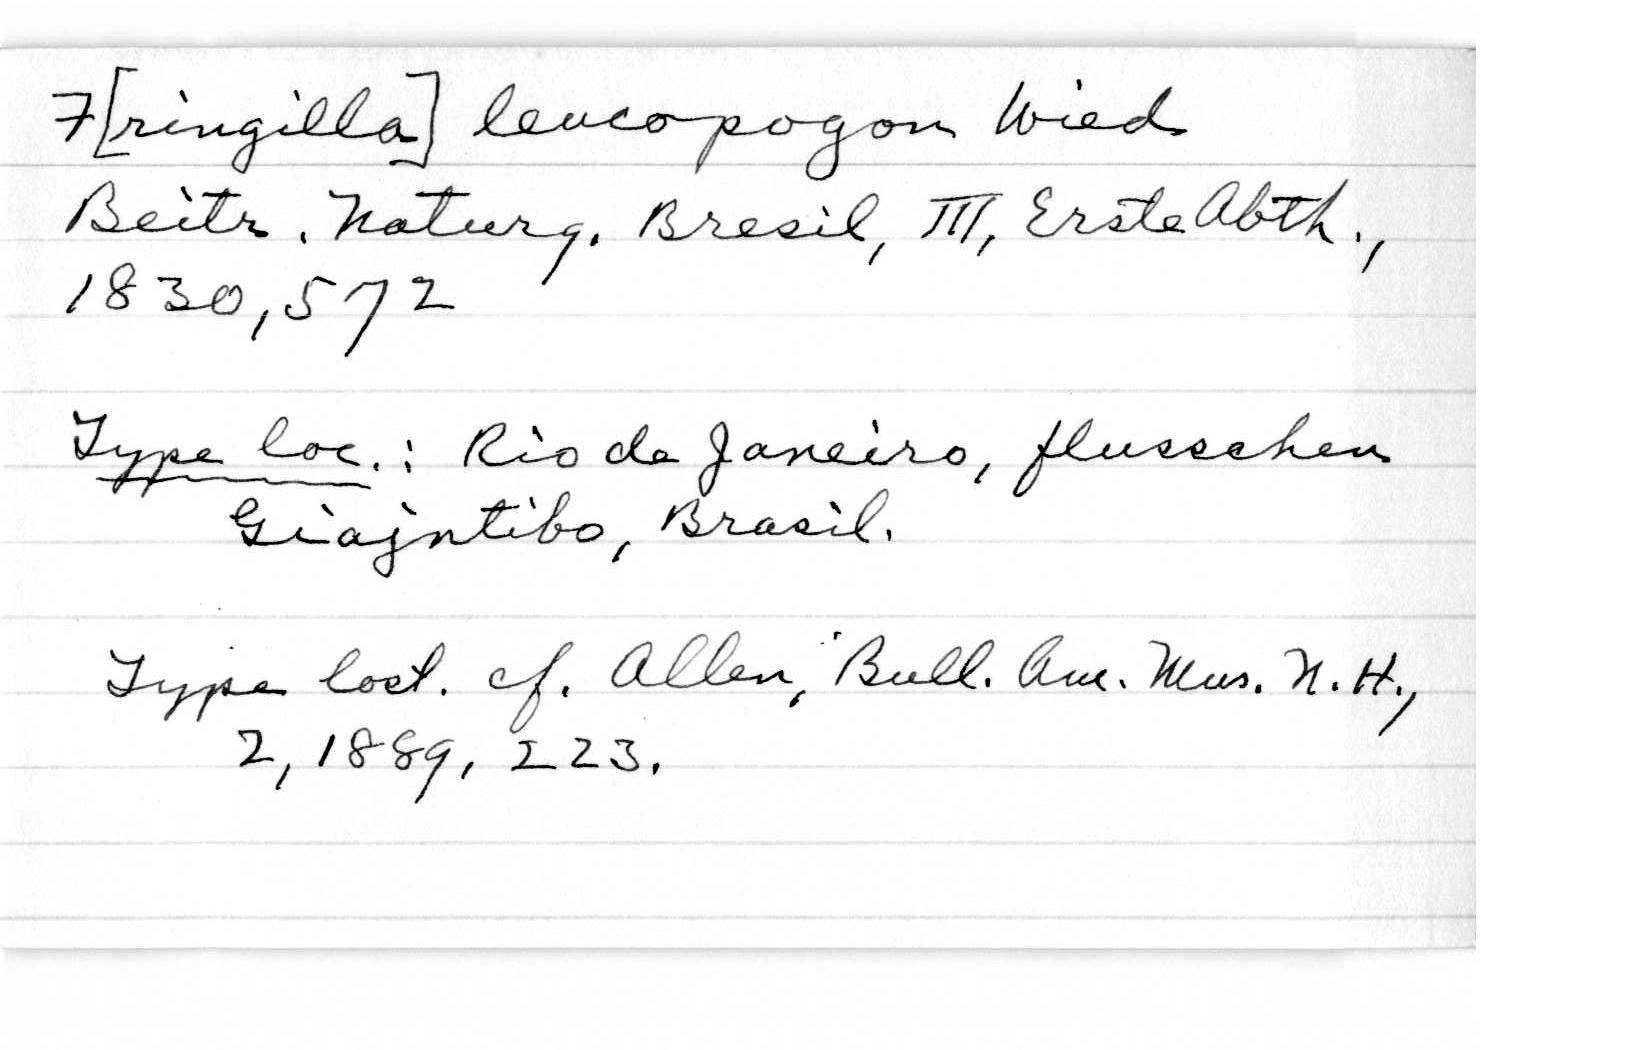 F[ringilla] leucopogon Wied
Beitr. Naturg. Bresil, III, Erste Abth.,
1830, 572
Type loc.: Rio de Janeiro, flusschen
Giajntibo, Brasil.
Type lost. cf. Allen, Bull. Am. Mus. N. H.,
2, 1889, 223.